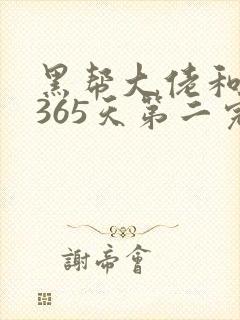 黑帮大佬和
365天第二完
謝帝會